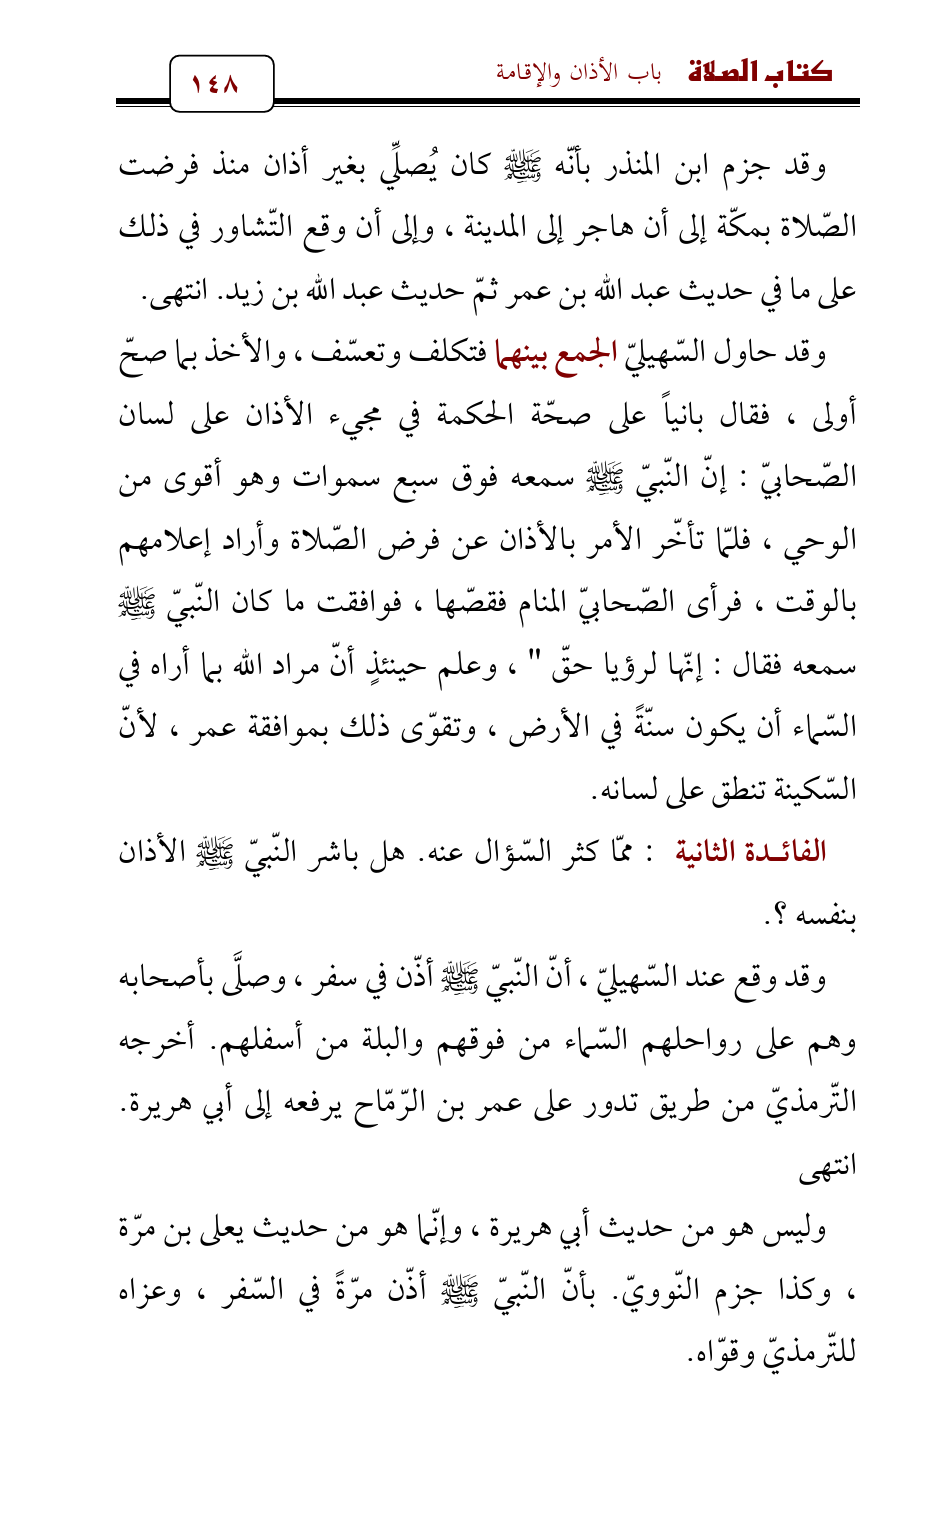 كتاب الصلاة باب الأذان والإقامة ١٤٨
وقد جزم ابن المنذر بأنّه ﷺ كان يُصلِّي بغير أذان منذ فرضت
الصّلاة بمكّة إلى أن هاجر إلى المدينة ، وإلى أن وقع التّشاور في ذلك
على ما في حديث عبد الله بن عمر ثمّ حديث عبد الله بن زيد. انتهى.
وقد حاول السّهيليّ الجمع بينهما فتكلف وتعسّف ، والأخذ بما صحّ
أولى ، فقال بانياً على صحّة الحكمة في مجيء الأذان على لسان
الصّحابيّ : إنّ النّبيّ ﷺ سمعه فوق سبع سموات وهو أقوى من
الوحي ، فلمّا تأخّر الأمر بالأذان عن فرض الصّلاة وأراد إعلامهم
بالوقت ، فرأى الصّحابيّ المنام فقصّها ، فوافقت ما كان النّبيّ ﷺ
سمعه فقال : إنّها لرؤيا حقّ " ، وعلم حينئذٍ أنّ مراد الله بما أراه في
السّماء أن يكون سنّةً في الأرض ، وتقوّى ذلك بموافقة عمر ، لأنّ
السّكينة تنطق على لسانه.
الفائـدة الثانية : ممّا كثر السّؤال عنه. هل باشر النّبيّ ﷺ الأذان
بنفسه ؟.
وقد وقع عند السّهيليّ ، أنّ النّبيّ ﷺ أذّن في سفر ، وصلَّى بأصحابه
وهم على رواحلهم السّماء من فوقهم والبلة من أسفلهم. أخرجه
التّرمذيّ من طريق تدور على عمر بن الرّمّاح يرفعه إلى أبي هريرة.
انتهى
وليس هو من حديث أبي هريرة ، وإنّما هو من حديث يعلى بن مرّة
، وكذا جزم النّوويّ. بأنّ النّبيّ ﷺ أذّن مرّةً في السّفر ، وعزاه
للتّرمذيّ وقوّاه.